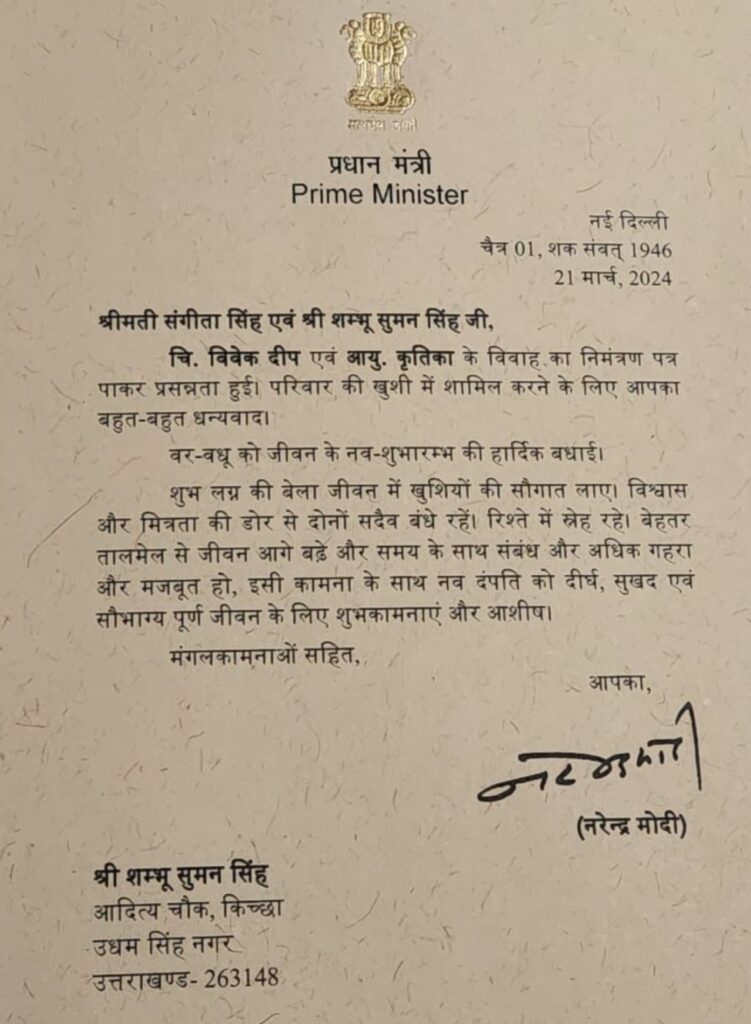 सत्यमेव जयते
प्रधान मंत्री
Prime Minister
नई दिल्ली
चैत्र 01, शक संवत् 1946
21 मार्च, 2024
श्रीमती संगीता सिंह एवं श्री शम्भू सुमन सिंह जी,
चि. विवेक दीप एवं आयु. कृतिका के विवाह का निमंत्रण पत्र
पाकर प्रसन्नता हुई। परिवार की खुशी में शामिल करने के लिए आपका
बहुत-बहुत धन्यवाद।
वर-वधू को जीवन के नव-शुभारम्भ की हार्दिक बधाई।
शुभ लग्न की बेला जीवन में खुशियों की सौगात लाए। विश्वास
और मित्रता की डोर से दोनों सदैव बंधे रहें। रिश्ते में स्नेह रहे। बेहतर
तालमेल से जीवन आगे बढ़े और समय के साथ संबंध और अधिक गहरा
और मजबूत हो, इसी कामना के साथ नव दंपति को दीर्घ, सुखद एवं
सौभाग्य पूर्ण जीवन के लिए शुभकामनाएं और आशीष।
मंगलकामनाओं सहित,
आपका,
(नरेन्द्र मोदी)
श्री शम्भू सुमन सिंह
आदित्य चौक, किच्छा
उधम सिंह नगर
उत्तराखण्ड- 263148